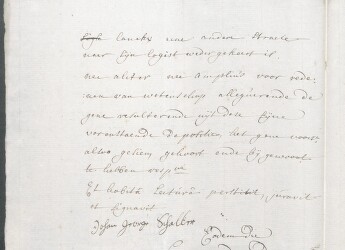 Canaby une andere Straete
naer sijn logist weder gekeert is
nec aliter nec amplius voor rede-
nen van wetenschap allegueerende de
gene resulteerende uijt dese sijne
voorenstaende depositien, het gene voors.
alsoo gesien, gehoort ende bij gewoont
te hebben
Et habita lectura perstitit, juravit
et signavit
Johan George
Eodem die